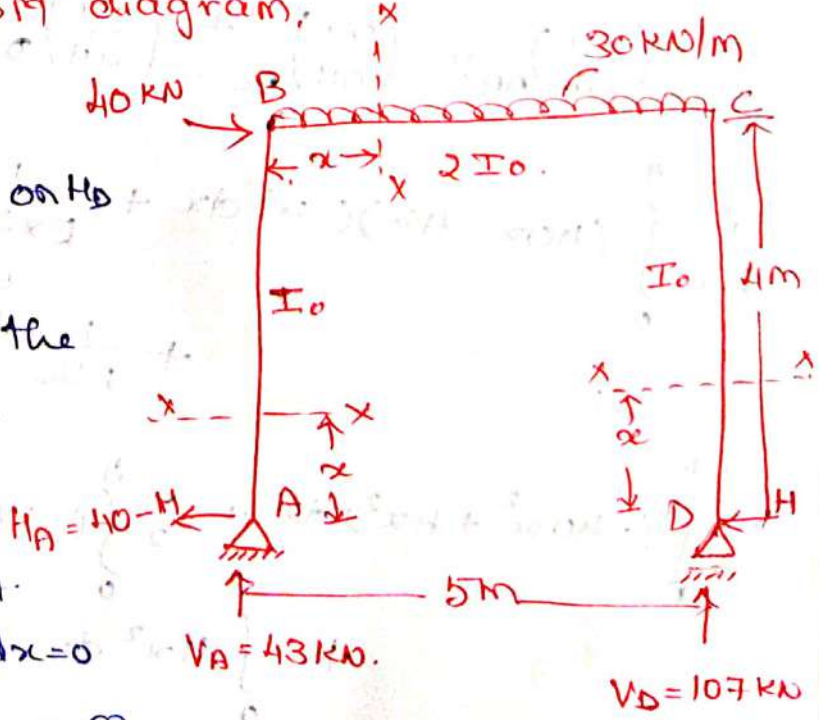 BM diagram.
x
30KN/m
40 KN
B
C
x
2I₀.
X
on H_D
I₀
I₀
4m
the
x
X
x
x
x
x
H_A = 40-H
A
D
H
5m
dx=0
V_A = 43 KN.
V_D = 107 KN